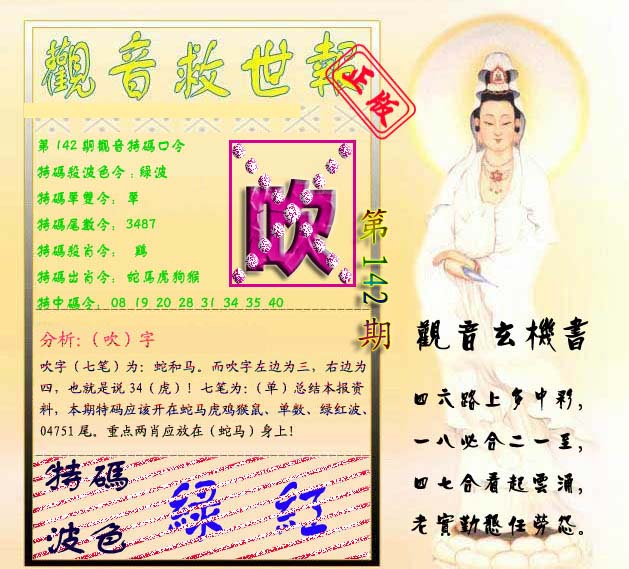 觀音救世報
正版
第142期觀音特碼口令
特碼殺波色令:綠波
特碼單雙令: 單
特碼尾數令: 3487
特碼殺肖令: 鷄
特碼出肖令: 蛇馬虎狗猴
特中碼令: 08 19 20 28 31 34 35 40
吹
第142期
分析:（吹）字
吹字（七笔）为：蛇和马。而吹字左边为三，右边为
四，也就是说34（虎）！七笔为：（单）总结本报资
料，本期特码应该开在蛇马虎鸡猴鼠、单数、绿红波、
04751尾。重点两肖应放在（蛇马）身上！
特碼
波色
綠 紅
觀音玄機書
四六路上多中彩，
一八必合二一至，
四七合看起雲涌，
老實勤懇任勞怨。